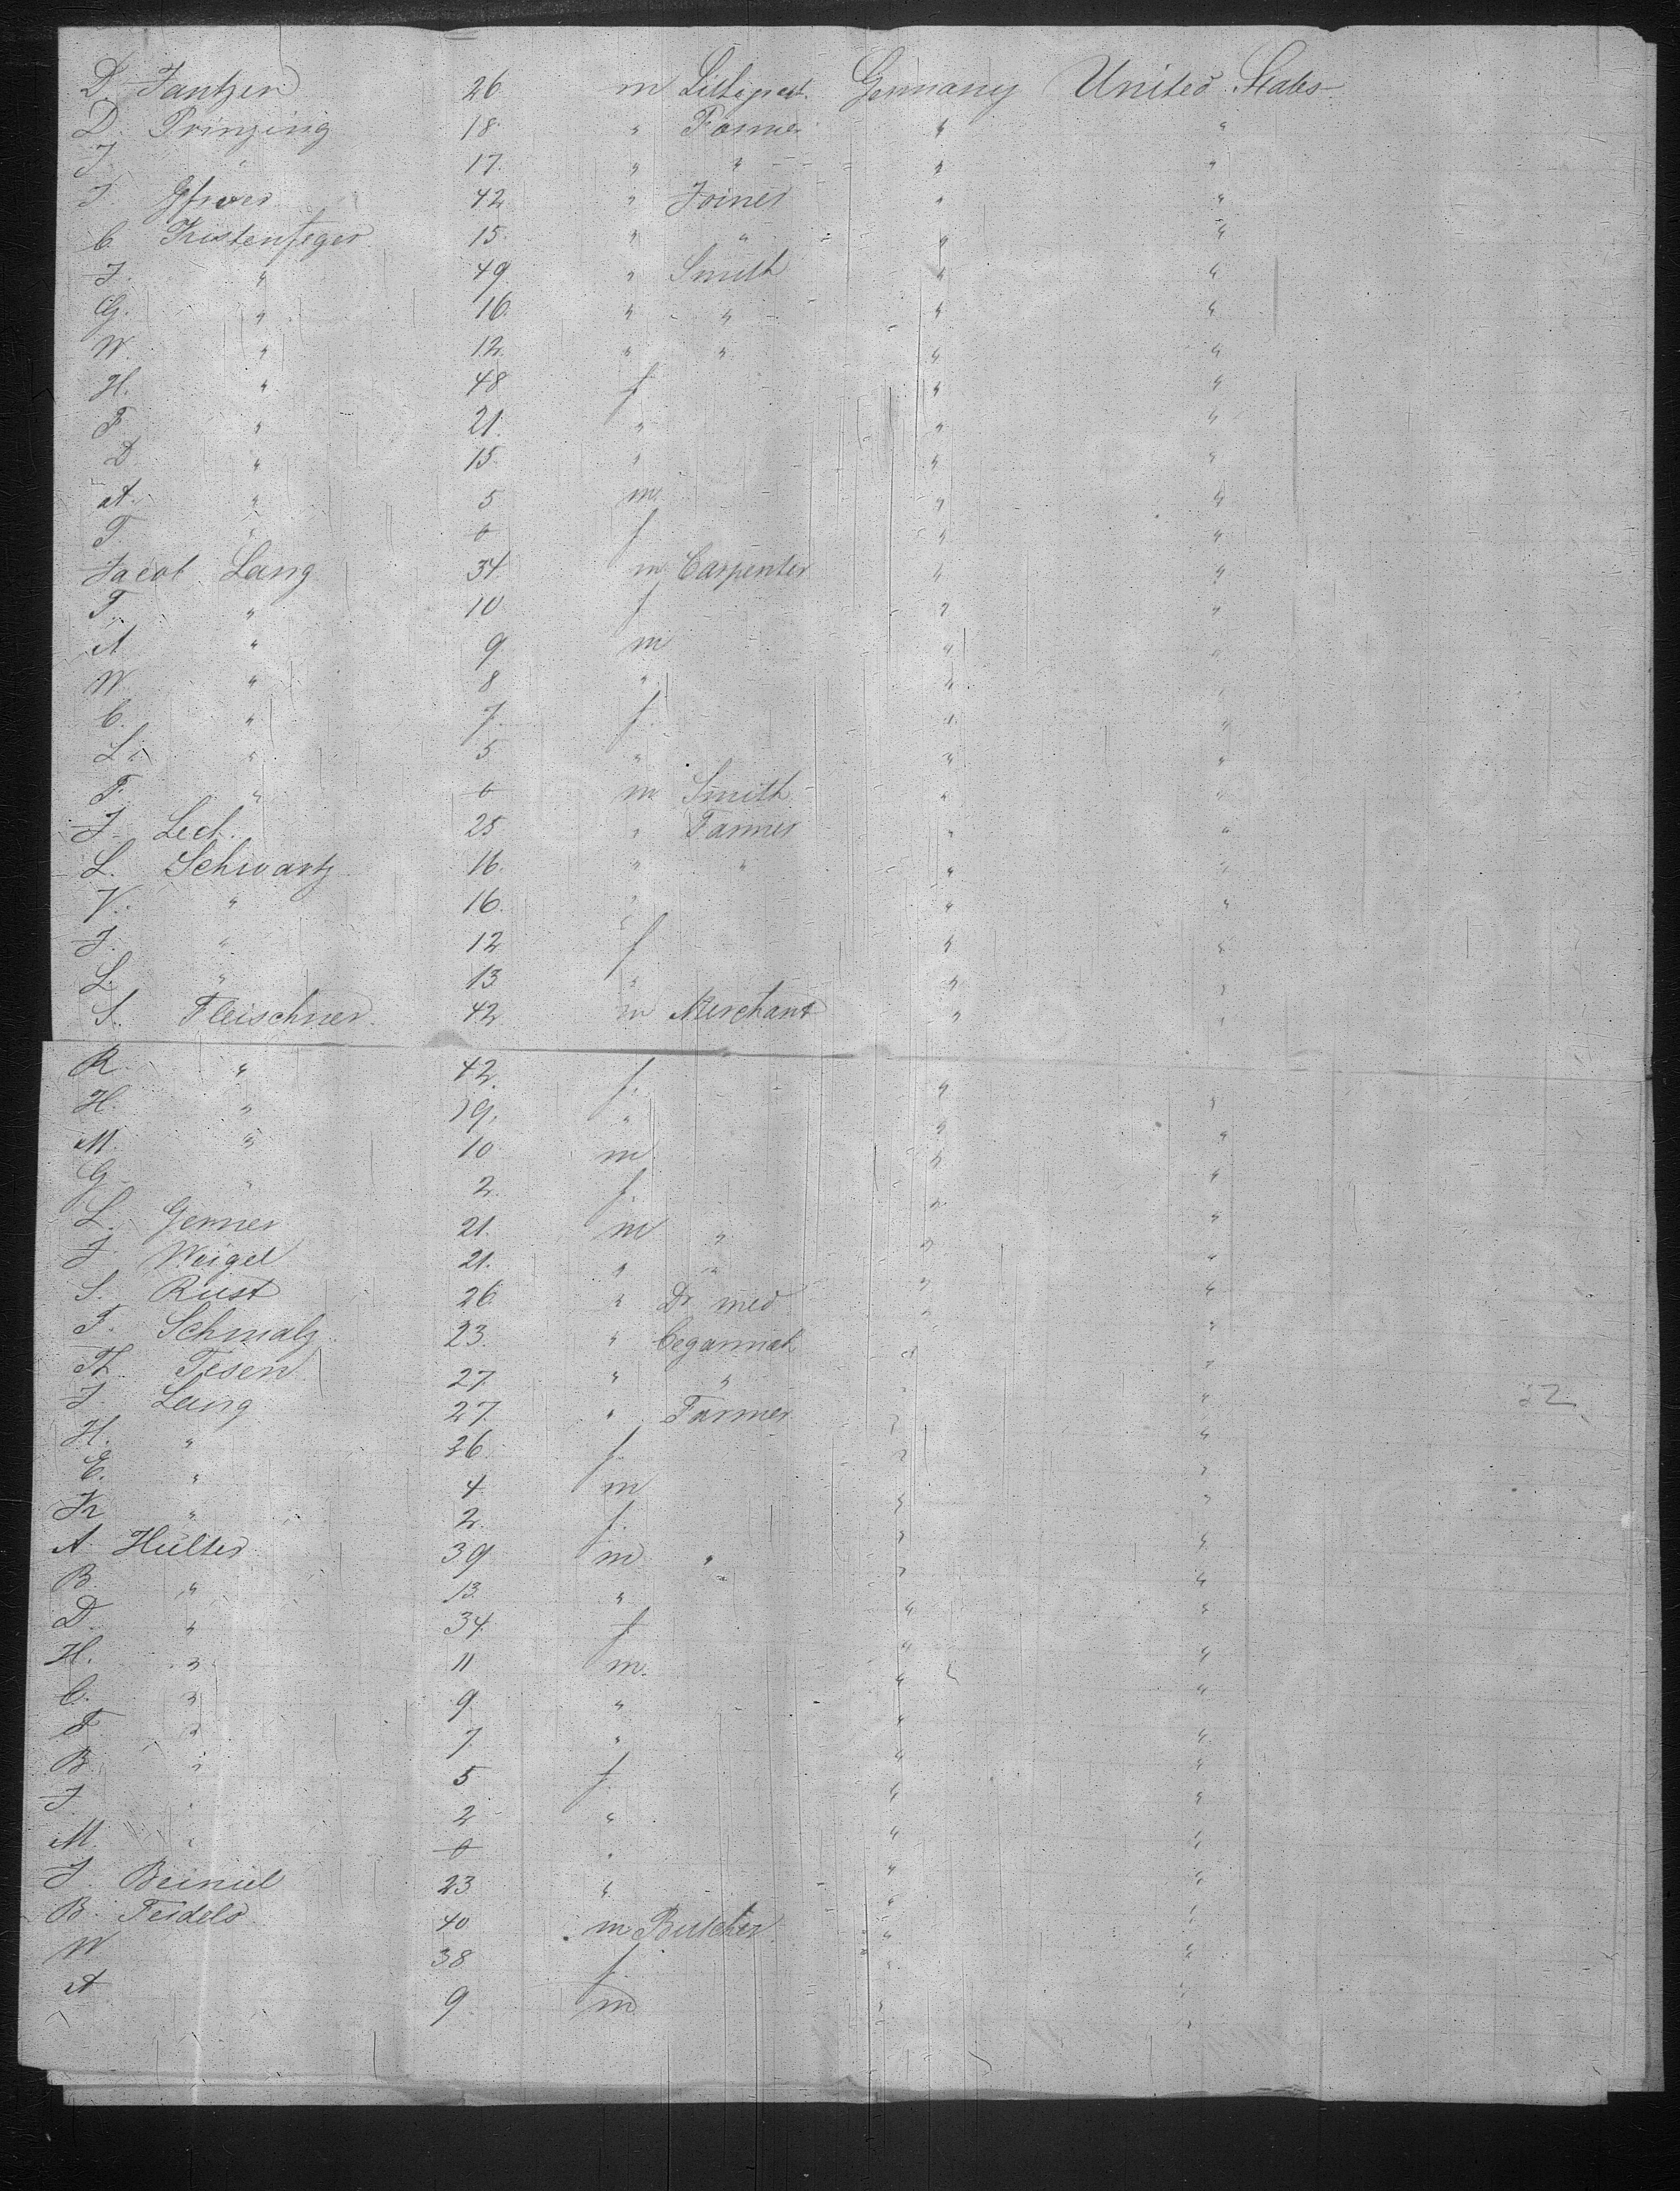 D Jantzen 26 m Germany United States
D. Prinzing 18 " Farmer " "
J. " 17 " " " "
J. Gfroer 42 " Joiner " "
C. Kistenfeger 15 " " " "
J. " 49 " Smith " "
G. " 16 " " " "
W. " 12 " " " "
H. " 48 f " "
F " 21 " " "
D " 15 " " "
A. " 5 m " "
T " 0 f " "
Jacob Lang 34 m Carpenter " "
T. " 10 f " "
A " 9 m " "
W " 8 " " "
C. " 7 f " "
L. " 5 " " "
F. " 0 m Smith " "
J. Lech 25 " Farmer " "
L. Schwartz 16 " " " "
V. " 16 " " "
J. " 12 f " "
L. " 13 " " "
S. Fleischner 42 m Merchant " "
R. " 42 f " "
H. " 19 " " "
M. " 10 m " "
G. " 2 f. " "
L. Gerner 21. m " " "
J Weigel 21. " " " "
S. Rust 26 " Dr med " "
F. Schmalz 23. " " "
Th. Tesen 27 " " " "
J. Lang 27 " Farmer " "
H. " 26 f " "
E. " 4 m " "
Kr " 2 f. " "
A Hülter 39 m " " "
B " 13 " " "
D. " 34 f " "
H. " 11 m. " "
C. " 9 " " "
F. " 7 " " "
B " 5 f " "
J " 2 " " "
M. " 0 " " "
J. Beiniel 23 " " "
B. Feidels 40 m Butcher " "
W 38 f " "
A 9 m " "